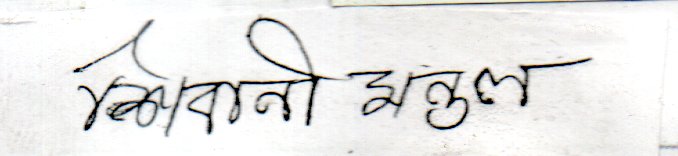 শিবানী মন্ডল